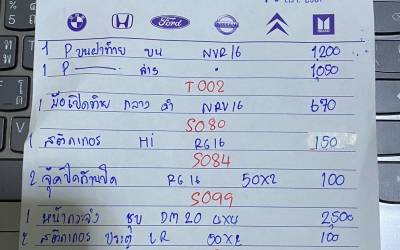 Ford NISSAN
1 P ขนฝาท้าย บน NVR16 1,200
1 P ล่าง 1,050
T002
1 มือเปิดท้าย กลาง ดำ NRV16 670
S080
1 สติกเกอร์ Hi RG16 150
S084
2 RG16 50X2 100
S099
1 หน้ากระจัง ชุบ DM20 4X4 2,500
2 สติกเกอร์ ประตู LR 50X2 100